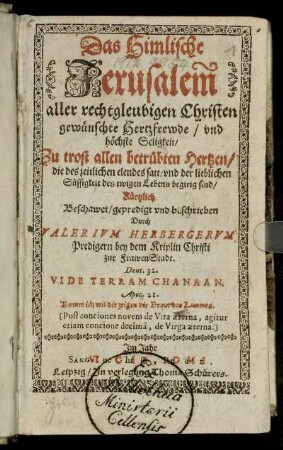 Das Himlische
Jerusalem̃
aller rechtgleubigen Christen
gewünschte Hertzfrewde / vnd
höchste Seligkeit /
Zu trost allen betrübten Hertzen /
die des zeitlichen elendes satt / vnd der lieblichen
Süssigkeit des ewigen Lebens begirig sind /
Kürtzlich
Beschawet / geprediget vnd beschrieben
Durch
VALERIVM HERBERGERVM,
Predigern bey dem Kriplin Christi
zur FrawenStadt.
Deut. 32.
VIDE TERRAM CHANAAN.
Apoc. 21.
Komm ich wil dir zeigen die Braut des Lammes.
(Post conciones novem de Vita æterna, agitur
etiam concione decimâ, de Virga æterna.)
Im Jahr
Leipzig / In verlegung Thomæ Schürers.
Bibliotheca
Ministerii
Cellensis